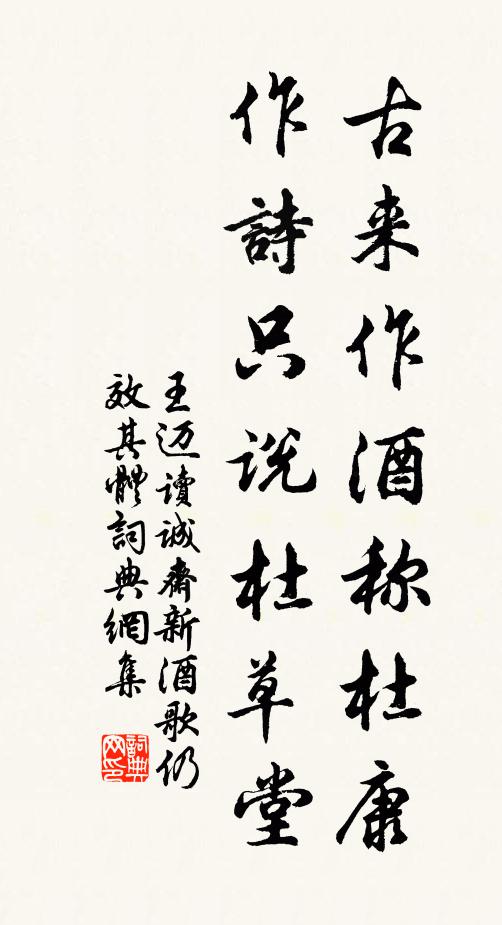 古来作酒称杜康
作詩只说杜草堂
王迈讀诚齋新酒歌仍
效其體詞典網集
詞典网印